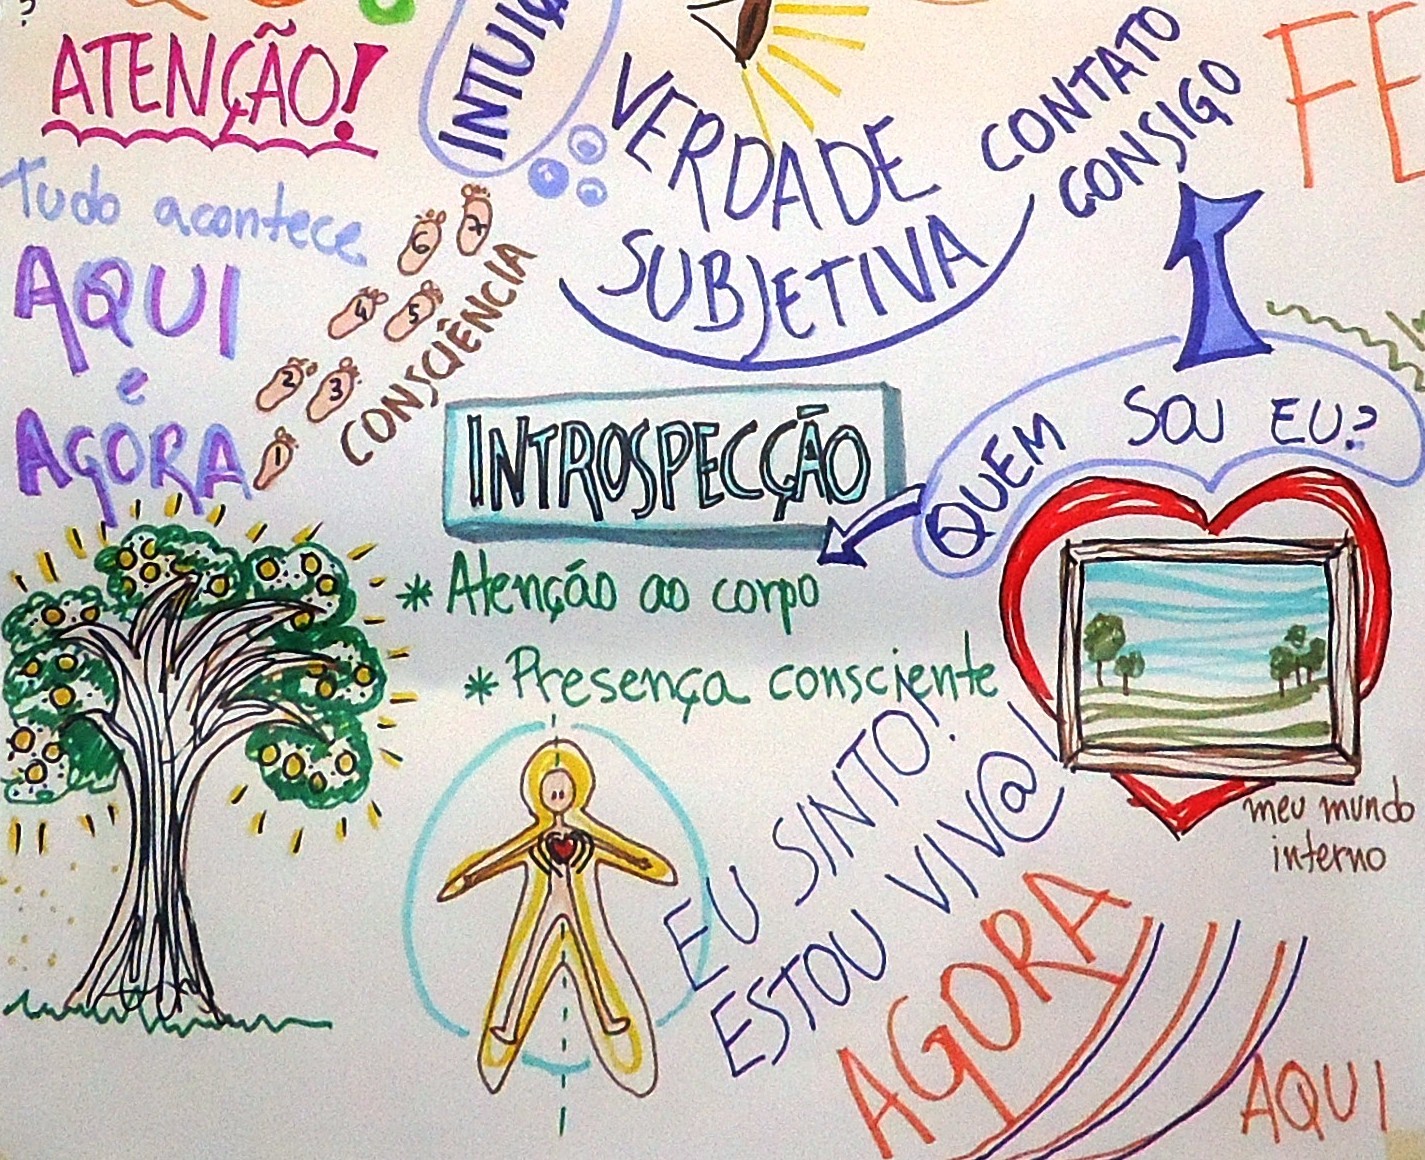 ATENÇÃO!
Tudo acontece
AQUI
e
AGORA
1
2
3
4
5
6
7
CONSCIÊNCIA
VERDADE
SUBJETIVA
CONTATO
CONSIGO
1
QUEM SOU EU?
INTROSPECÇÃO
* Atenção ao corpo
* Presença consciente
meu mundo
interno
EU SINTO!
ESTOU VIV@!
AGORA
AQUI